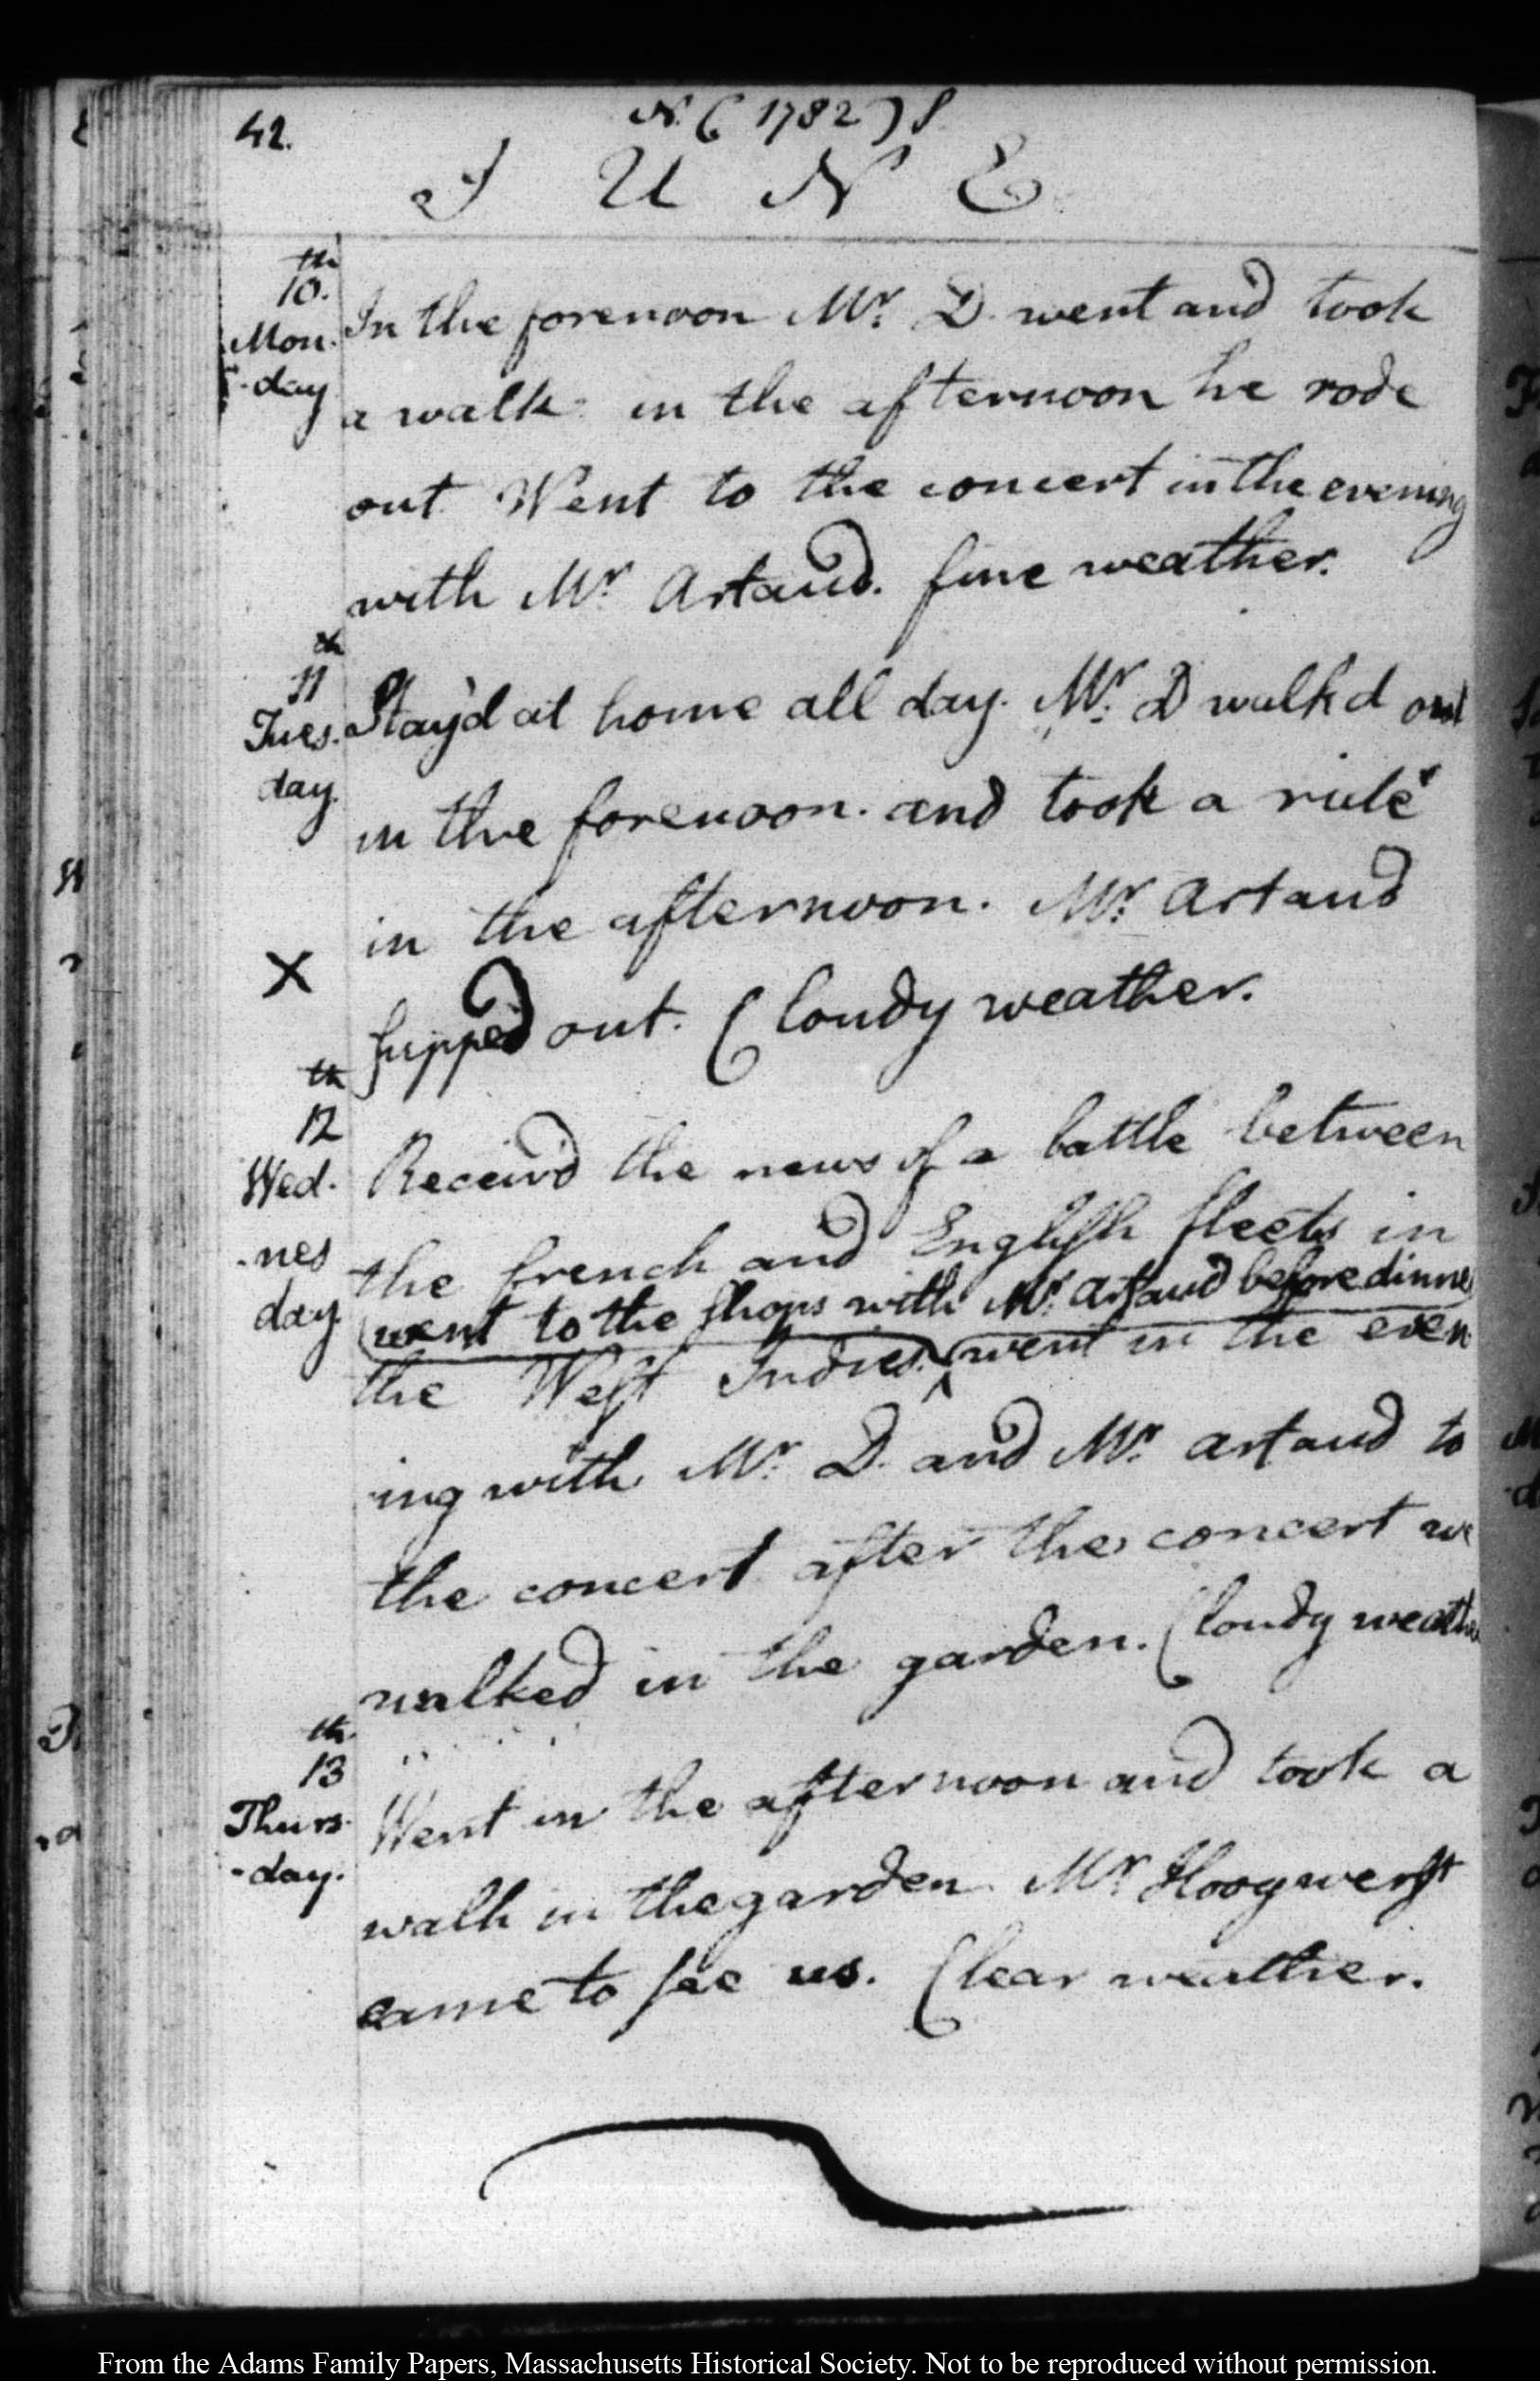 42.
N. ( 1782 ) S
J U N E
th
10.
Mon-
-day
In the forenoon Mr. D. went and took
a walk in the afternoon he rode
out Went to the concert in the evening
with Mr Artaud. fine weather.
th
11
Tues.
day.
Stay'd at home all day. Mr. D walk'd out
in the forenoon. and took a ride
in the afternoon. Mr. Artaud
X
supped out. Cloudy weather.
th
12
Wed.
-nes
day
Receiv'd the news of a battle between
the french and English fleets in
went to the shops with Mr. Artaud before dinner
the West Indies. ^ went in the even
ing with Mr. D. and Mr. Artaud to
the concert after the concert we
walked in the garden. Cloudy weather
th.
13
Thurs-
-day.
Went in the afternoon and took a
walk in the garden Mr Hoogwerft
came to see us. Clear weather.
From the Adams Family Papers, Massachusetts Historical Society. Not to be reproduced without permission.